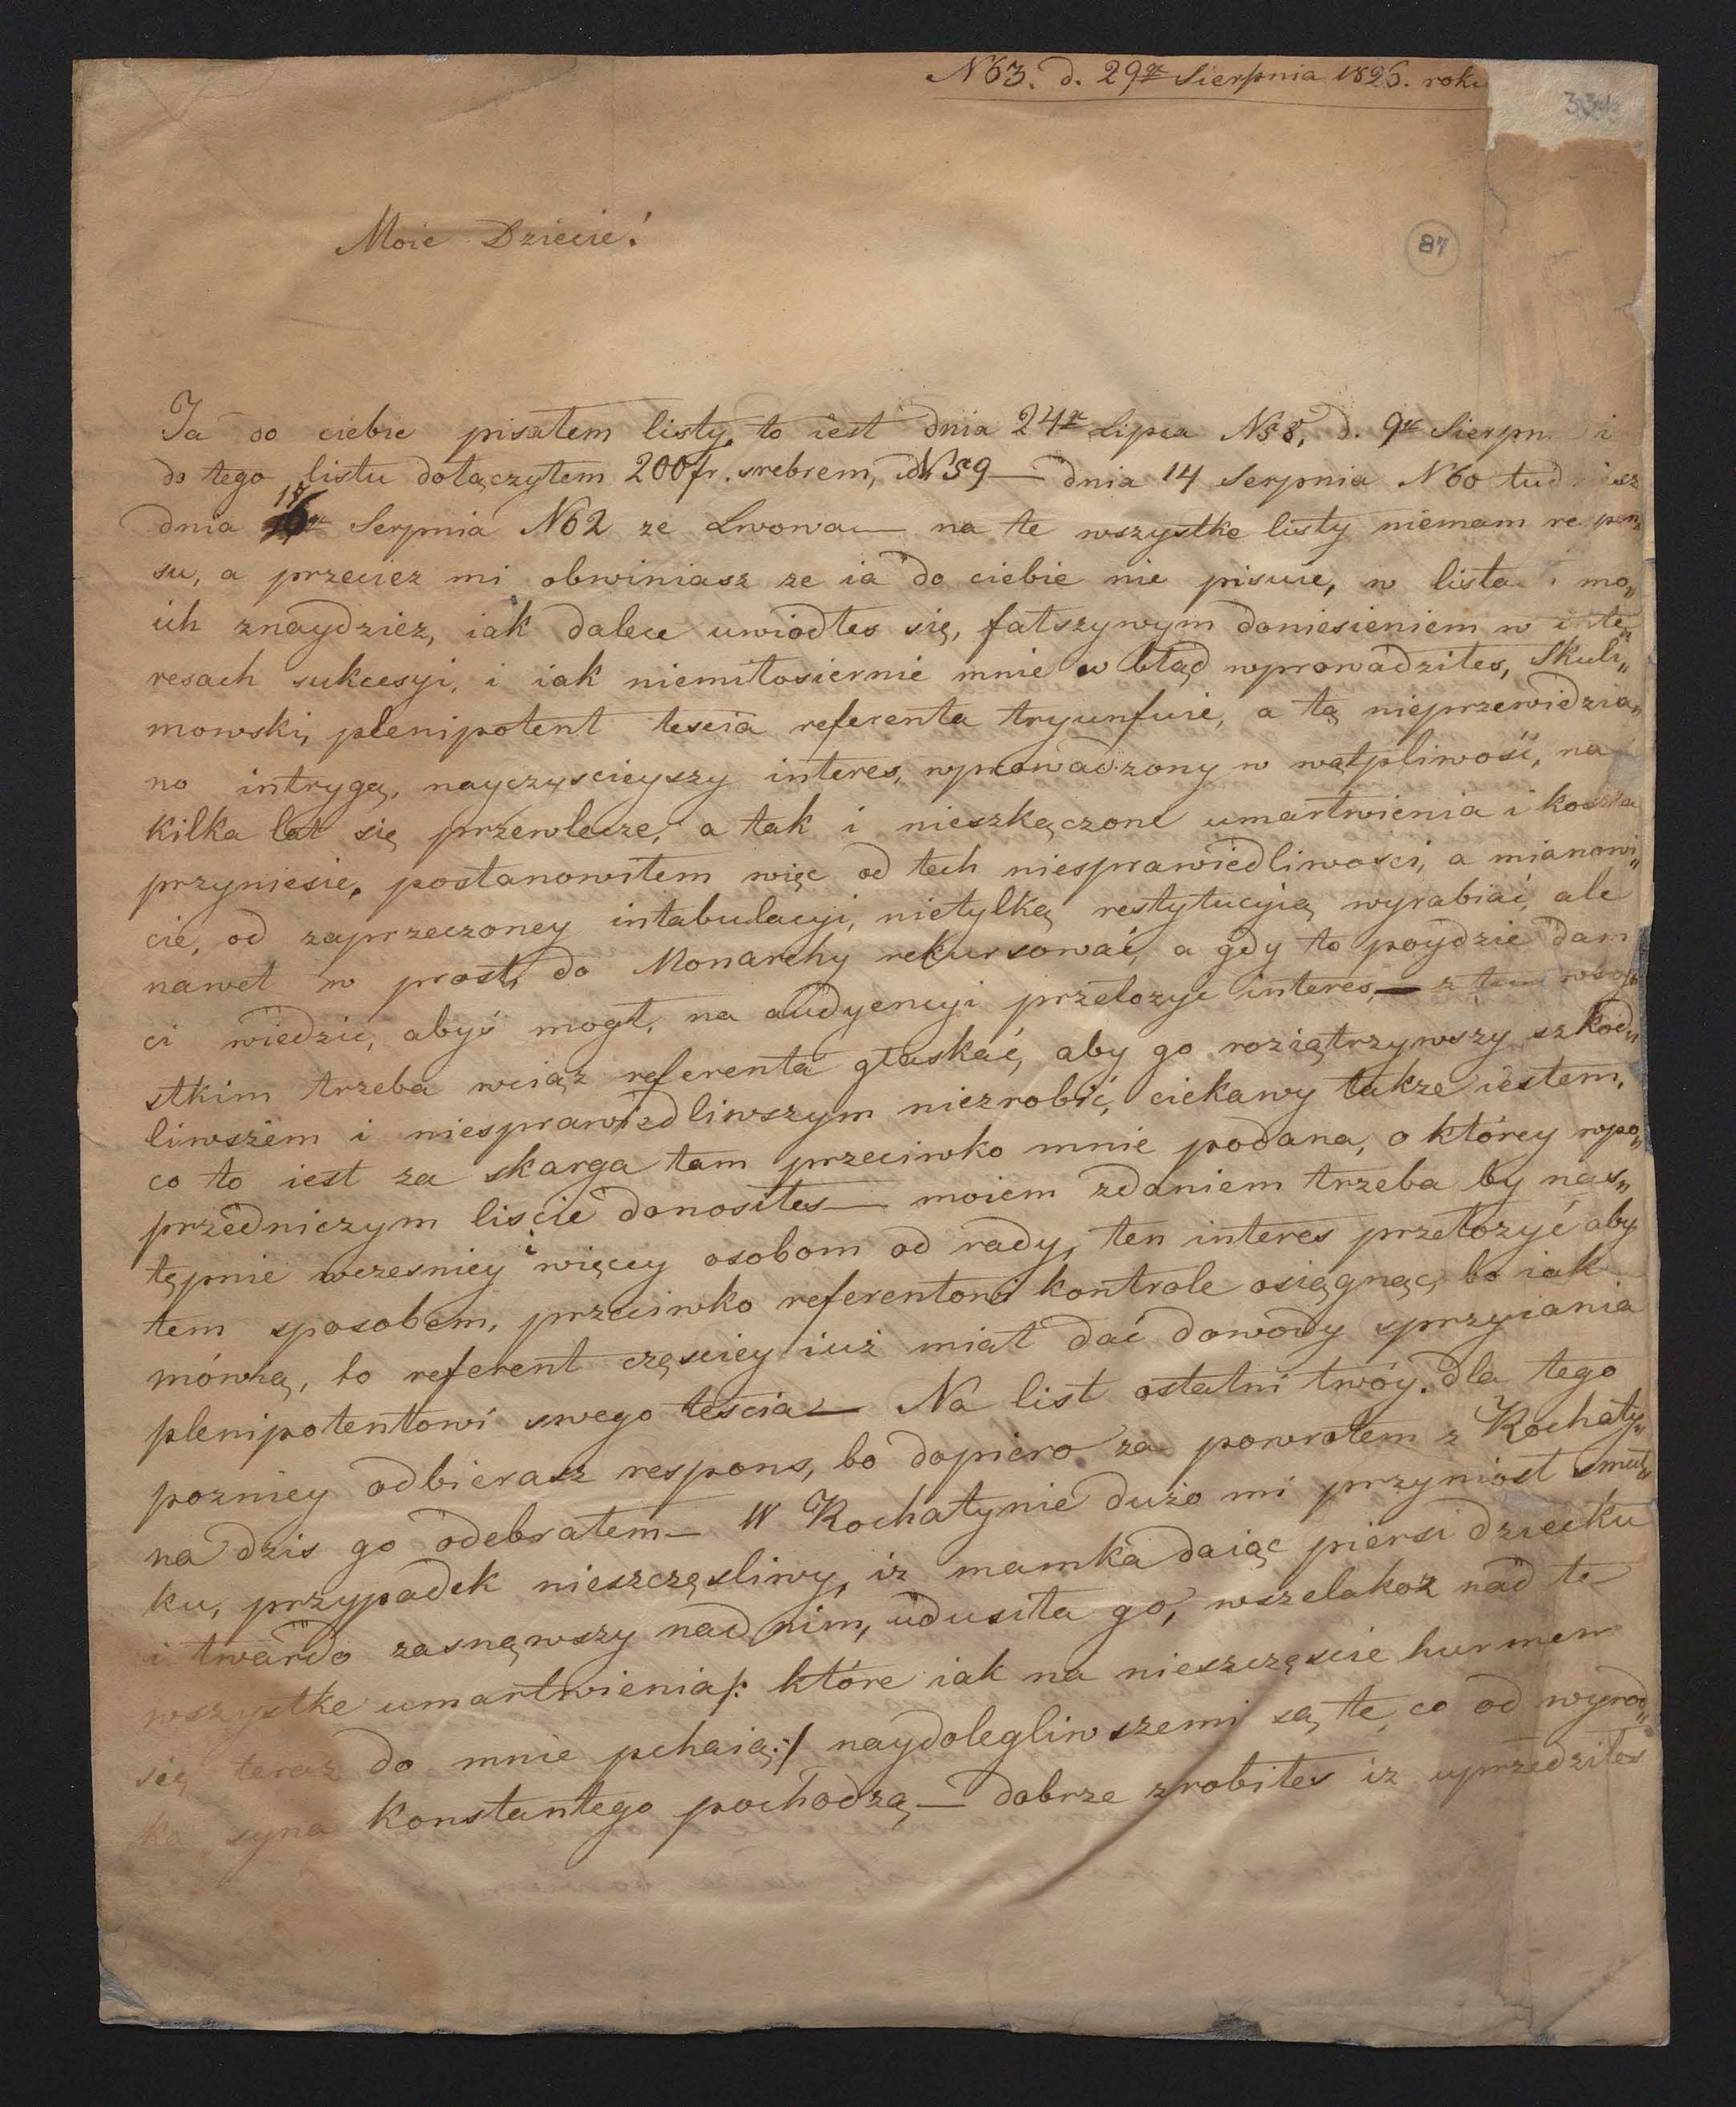 N63. d. 29go Sierpnia 1826. roku
87
Moie Dziecie!
Ja do ciebie pisałem listy, to iest dnia 24go Lipca N58, d. 9go Sierpn i
do tego listu dołączyłem 200fr. srebrem, N59 — dnia 14 Serpnia N60 tud iesz
dnia 18 Serpnia N62 ze Lwowa — na te wszystke listy niemam re pon„
su, a przeciez mi obwiniasz ze ia do ciebie nie pisuie, w lista mo„
ich znaydziez, iak dalece uwiodłes się, fałszywym doniesieniem w inte„
resach sukcesyi, i iak niemiłosiernie mnie w błąd wprowadziłes, Skuli„
mowski, plenipotent tescia referenta tryunfuie, a tą nieprzewidzia„
no intrygą, nayczyscieyszy interes, wprowadzony w wątpliwość, na
kilka lat się przewlecze, a tak i nieszkączone umartwienia i koszta
przyniesie, postanowiłem więc od tech niesprawiedliwosci, a mianowi„
cie, od zaprzeczoney intabulacyi, nietylką restytucyią wyrabiać, ale
nawet w prost, do Monarchy rekursować, a gdy to poydzie dam
ci wiedzić, abyś mogł, na audyencyi przełozyc interes, — z tem wszy„
stkim trzeba wciąz referenta głaskać, aby go roziątrzywszy szkod„
liwszem i niesprawiedliwszym niezrobić, ciekawy takze iestem,
co to iest za skarga tam przeciwko mnie podana, o którey wpo„
przedniczym liscie donosiłes — moiem zdaniem trzeba by nas„
tępnie wczesniey i więcey osobom od rady, ten interes przełozyć aby
tem sposobem, przeciwko referentowi kontrole osiągnąc, bo iak
mówią, to referent częsciey iuż miał dać dowody sprzyiania
plenipotentowi swego teścia — Na list ostatni twóy dla tego
pozniey odbierasz respons, bo dopiero za powrotem z Rochaty„
na dzis go odebrałem — W Rochatynie dużo mi przyniosł smut„
ku, przypadek nieszczęsliwy, iz mamka daiąc piersi dziecku
i twardo zasnąwszy nad nim, udusiła go, wszelakoz nad te
wszystke umartwienia /: które iak na nieszczęscie hurmem
się teraz do mnie pchaią :/ naydolegliwszemi są te, co od wyrod„
ka syna Konstantego pochodzą — dobrze zrobiłes iz uprzedziłes